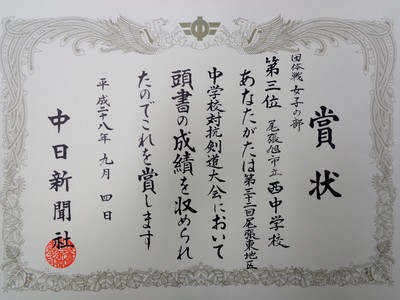 賞状
団体戦 女子の部
第三位 尾張旭市立 西中学校
あなたがたは第三十二回尾張東地区
中学校対抗剣道大会において
頭書の成績を収められ
たのでこれを賞します
平成二十八年 九月 四日
中日新聞社